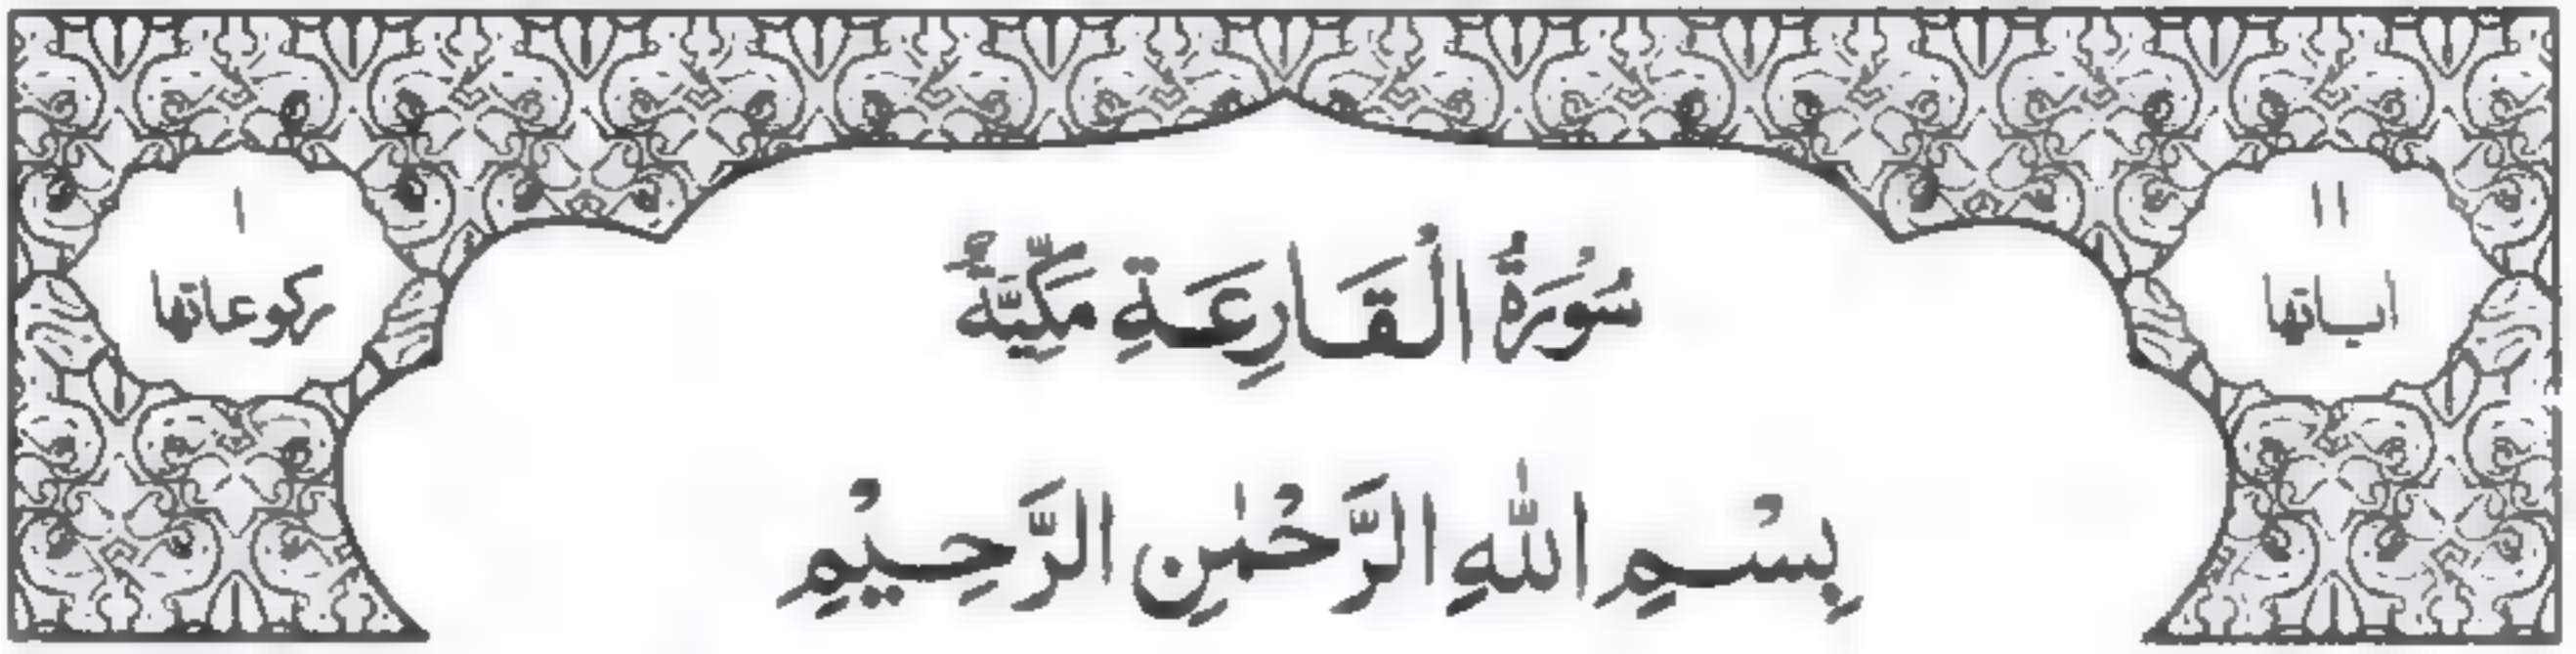 ۱۱
اٰياتها
سُوْرَةُ الْقَارِعَةِ مَكِّيَّةٌ
۱
ركوعاتها
بِسْمِ اللّٰهِ الرَّحْمٰنِ الرَّحِيْمِ